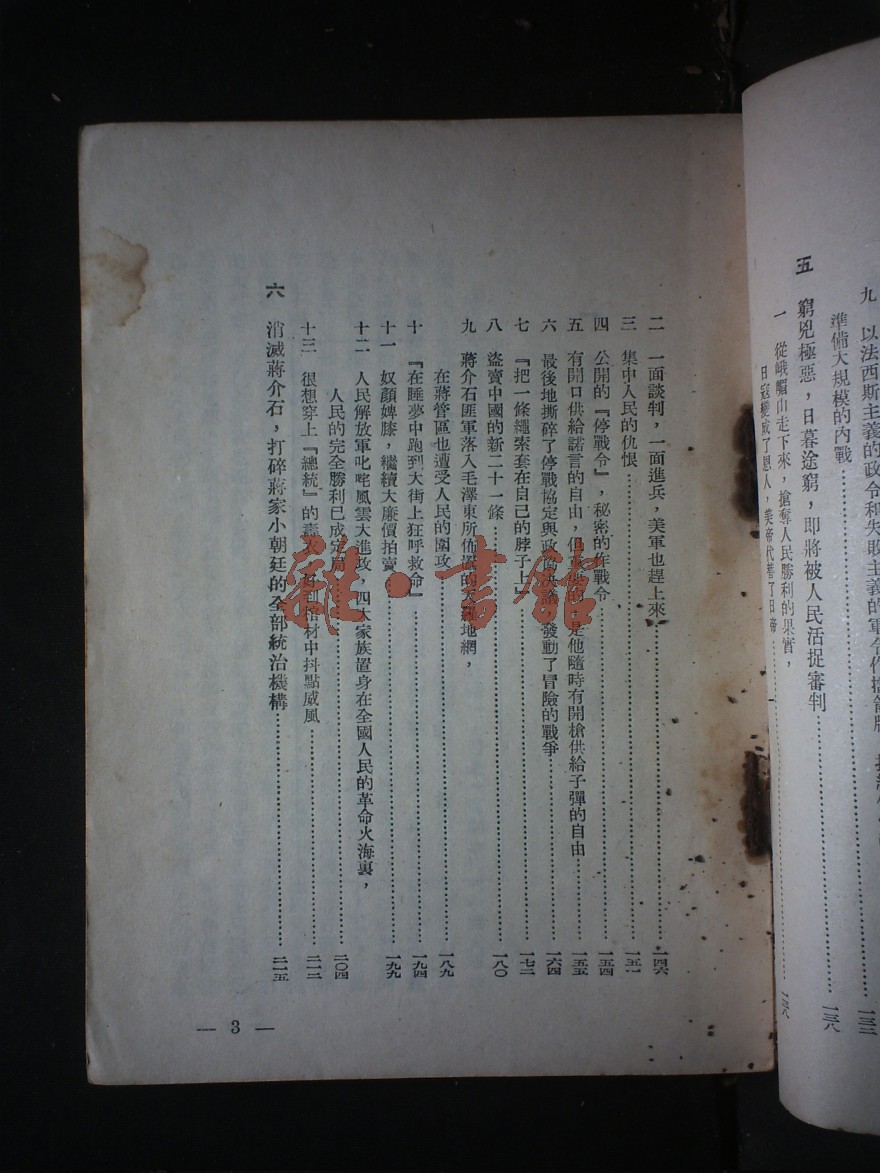 九 以法西斯主義的政令和失敗主義的軍令作擋箭牌
準備大規模的內戰……一三二
五 窮兇極惡，日暮途窮，即將被人民活捉審判……一三八
一 從峨嵋山走下來，搶奪人民勝利的果實，
日寇變成了恩人，美帝代替了日帝……一三八
二 一面談判，一面進兵，美軍也趕上來……一四六
三 集中人民的仇恨……一五一
四 公開的『停戰令』，秘密的作戰令……一五四
五 有開口供給諾言的自由，但 是他隨時有開槍供給子彈的自由……一五五
六 最後地撕碎了停戰協定與政協決議，發動了冒險的戰爭……一六四
七 『把一條繩索套在自己的脖子上』……一七二
八 盜賣中國的新二十一條……一八〇
九 蔣介石匪軍落入毛澤東所佈置的天羅地網，
在蔣管區也遭受人民的圍攻……一八九
十 『在睡夢中跑到大街上狂呼救命』……一九四
十一 奴顏婢膝，繼續大廉價拍賣……一九九
十二 人民解放軍叱咤風雲大進攻，四大家族置身在全國人民的革命火海裏，
人民的完全勝利已成定局……二〇四
十三 很想穿上『總統』的壽衣，好到棺材中抖點威風……二一二
六 消滅蔣介石，打碎蔣家小朝廷的全部統治機構……二一五
— 3 —
雜·書館